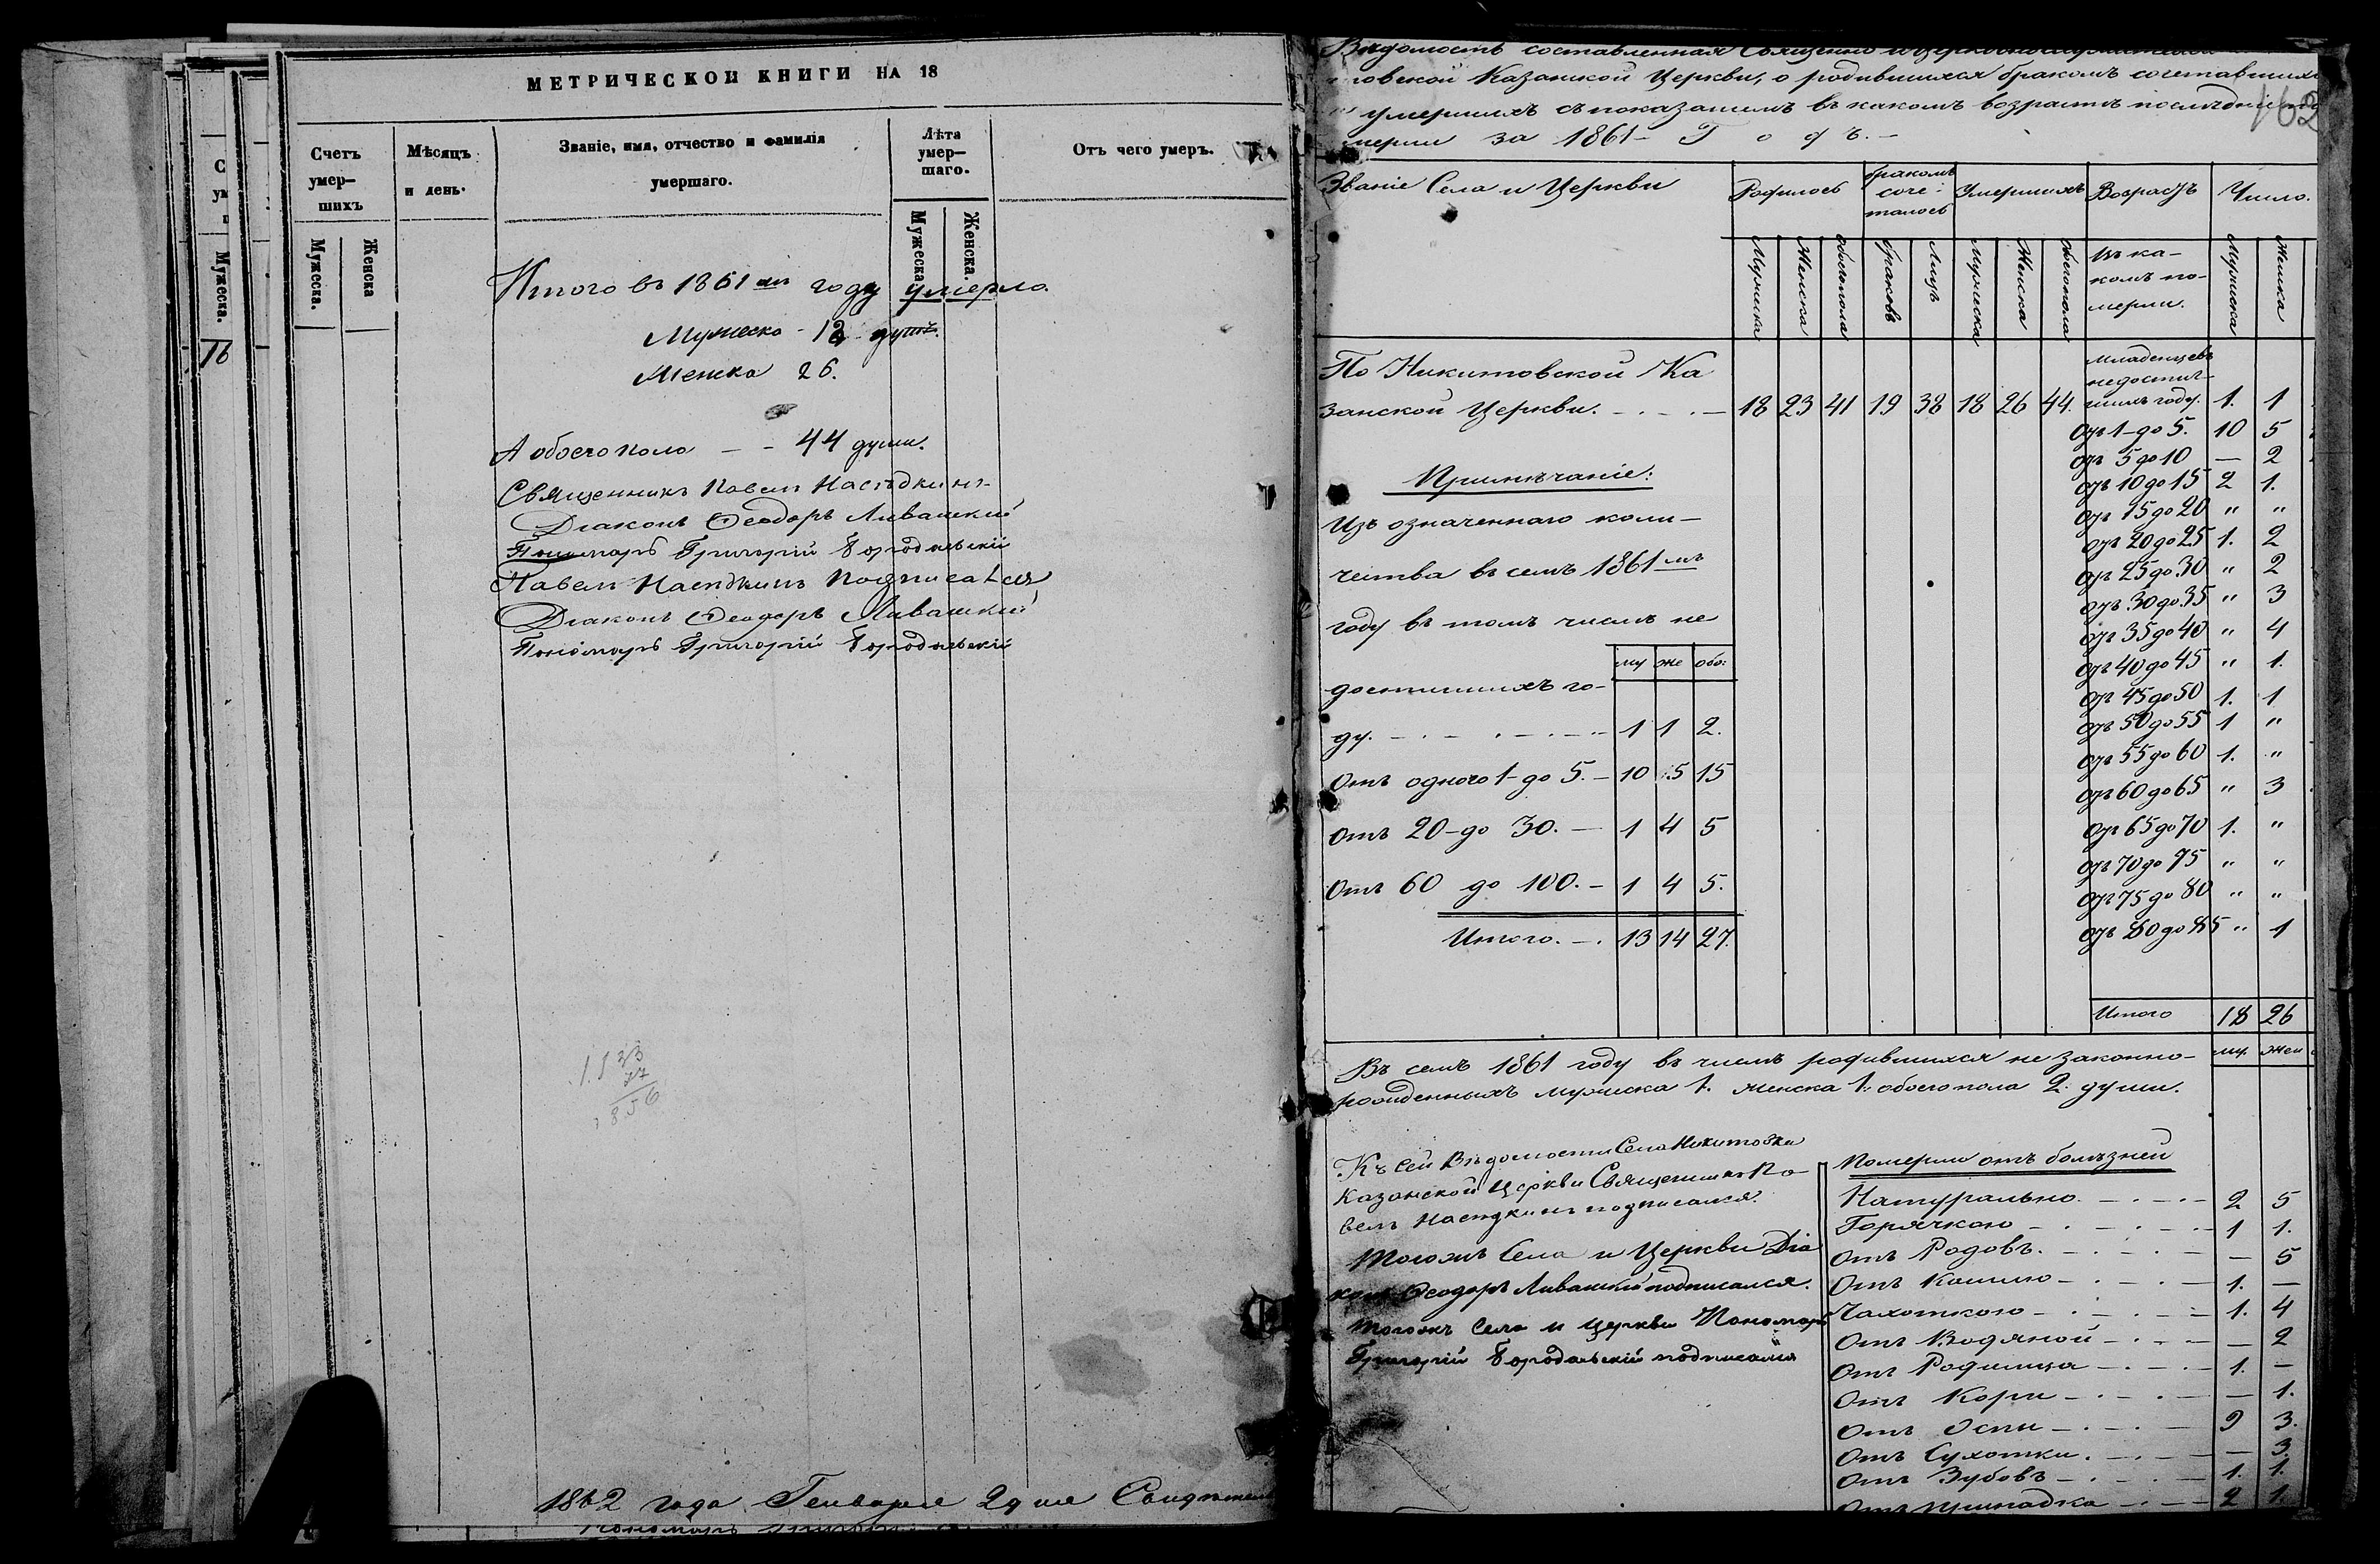 МЕТРИЧЕСКОЙ КНИГИ НА 18
Счетъ умер- шихъ
Мѣсяцъ и день.
Званіе, имя, отчество и фамилія умершаго.
Лѣта умер- шаго.
Отъ чего умеръ.
Мужеска.
Женска
Мужеска.
Женска.
Мужеска.
16
Итого въ 1861 мъ году умерло
Мужеска - 18 душъ.
Женска 26.
А обоего пола — - 44 души.
Священникъ Павелъ Насѣдкинъ
Діаконъ Ѳеодоръ Ливанскій
Пономарь Григорій Городальскій
Павелъ Насѣдкинъ подписался
Діаконъ Ѳеодоръ Ливанскій
Пономарь Григорій Городальскій
33
27
856
1862 года Генваря 2 дня
Вѣдомость составленная Священно и
товской Казанской Церкви, о родившихся бракомъ сочетавшихся
умершихъ съ показаніемъ въ какомъ возрастѣ послѣдніе
162
мерли за 1861- Годъ. -
Званіе Села и Церкви
Родилось
бракомъ соче- талось
Умершихъ
Возрастъ
Число.
Мужеска
Женска
обоего пола
браковъ
Лицъ
Мужеска
Женска
обоего пола
въ ка- комъ по- мерли.
Мужеска
Женска
По Никитовской Ка
занской Церкви. 18 23 41 19 38 18 26 44.
младенцевъ
недостиг-
шихъ году. 1. 1
отъ 1-до 5. 10 5
отъ 5 до 10 — 2
отъ 10 до 15 2 1.
отъ 15 до 20 " "
отъ 20 до 25 1. 2
отъ 25 до 30 " 2
отъ 30 до 35 " 3
отъ 35 до 40 " 4
отъ 40 до 45 " 1.
отъ 45 до 50 1. 1
отъ 50 до 55 1 "
отъ 55 до 60 1. "
отъ 60 до 65 " 3
отъ 65 до 70 1. "
отъ 70 до 75 " "
отъ 75 до 80 " "
отъ 80 до 85 " 1
Итого 18 26
Примѣчаніе:
Изъ означеннаго коли-
чества въ семъ 1861 мъ
году въ томъ числѣ не
му же обо:
достигшихъ го-
ду. 1 1 2.
Отъ одного 1-до 5. - 10 5 15
Отъ 20-до 30. — 1 4 5
Отъ 60 до 100. - 1 4 5.
Итого. — 13 14 27.
Въ семъ 1861 году въ числѣ родившихся не законно-
рожденныхъ мужеска 1. женска 1. обоего пола 2. души.
му. жен
Къ сей Вѣдомости Села Никитовки
Казанской Церкви Священникъ Па-
велъ Насѣдкинъ подписался.
Тогожъ Села и Церкви Діа
конъ Ѳеодоръ Ливанскій подписался.
Тогожъ Села и Церкви Пономарь
Григорій Городальскій подписался
Померли отъ болѣзней
Натурально. 2 5
Горячкою 1 1.
Отъ Родовъ. — 5
Отъ Кашлю 1. —
Чахоткою 1. 4
Отъ Водяной — 2
Отъ Родимца 1. —
Отъ Кори — 1.
Отъ Оспы 9 3.
Отъ Сухотки. — 3.
Отъ Зубовъ 1. 1.
2 1.